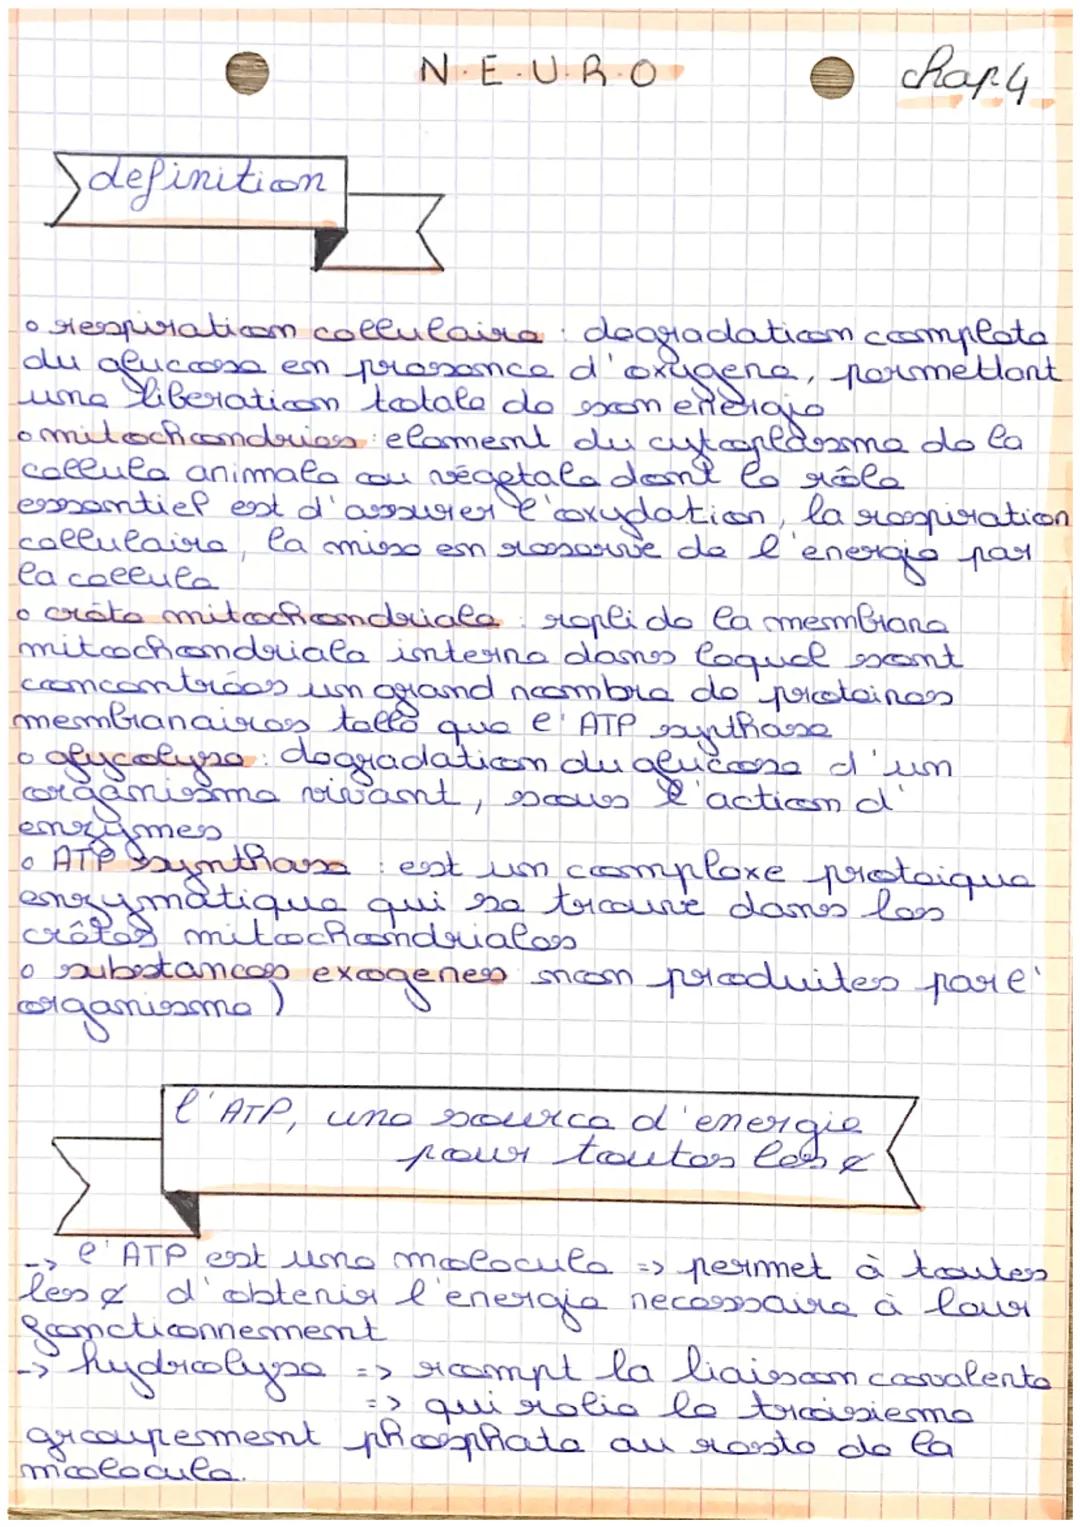 N.E.U.R.O
chap.4
definition
o respiration cellulaire : degradation complete
du glucose en presence d'oxygene, permettant
une liberation totale de son energie
o mitochondries : element du cytoplasme de la
cellule animale ou végétale dont le rôle
essentiel est d'assurer l'oxydation, la respiration
cellulaire, la mise en reserve de l'energie par
la cellule
o crête mitochondriale : repli de la membrane
mitochondriale interne dans lequel sont
concentrées un grand nombre de proteines
membranaires telle que l'ATP synthase
o glycolyse : degradation du glucose d'un
organisme vivant, sous l'action d'
enzymes
o ATP synthase : est un complexe proteique
enzymatique qui se trouve dans les
crêtes mitochondriales
o substances exogenes non produites par l'
organisme )
l'ATP, une source d'energie
pour toutes les ¢
-> l'ATP est une molecule => permet à toutes
les ¢ d'obtenir l'energie necessaire à leur
fonctionnement
-> hydrolyse => rompt la liaison covalente
=> qui relie le troisieme
groupement phosphate au reste de la
molecule.